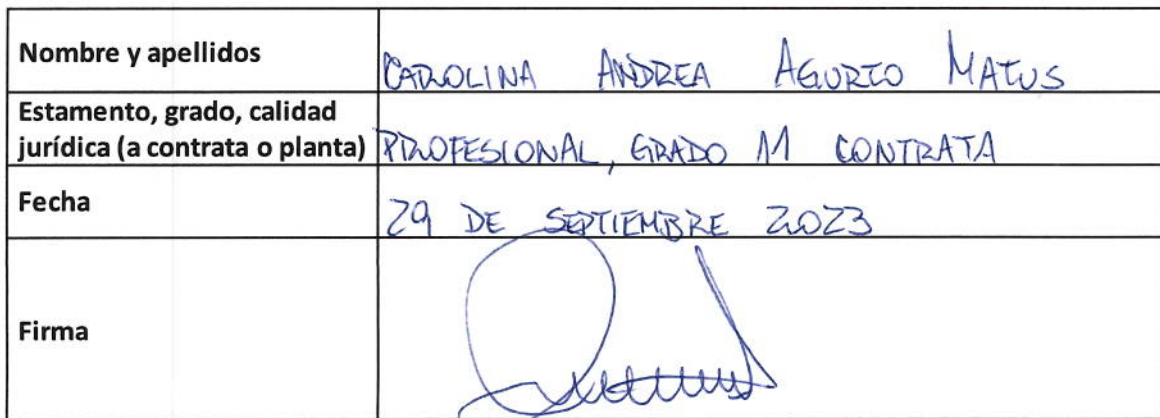 Nombre y apellidos
CAROLINA ANDREA AGURTO MATUS
Estamento, grado, calidad
jurídica (a contrata o planta)
PROFESIONAL, GRADO 11 CONTRATA
Fecha
29 DE SEPTIEMBRE 2023
Firma